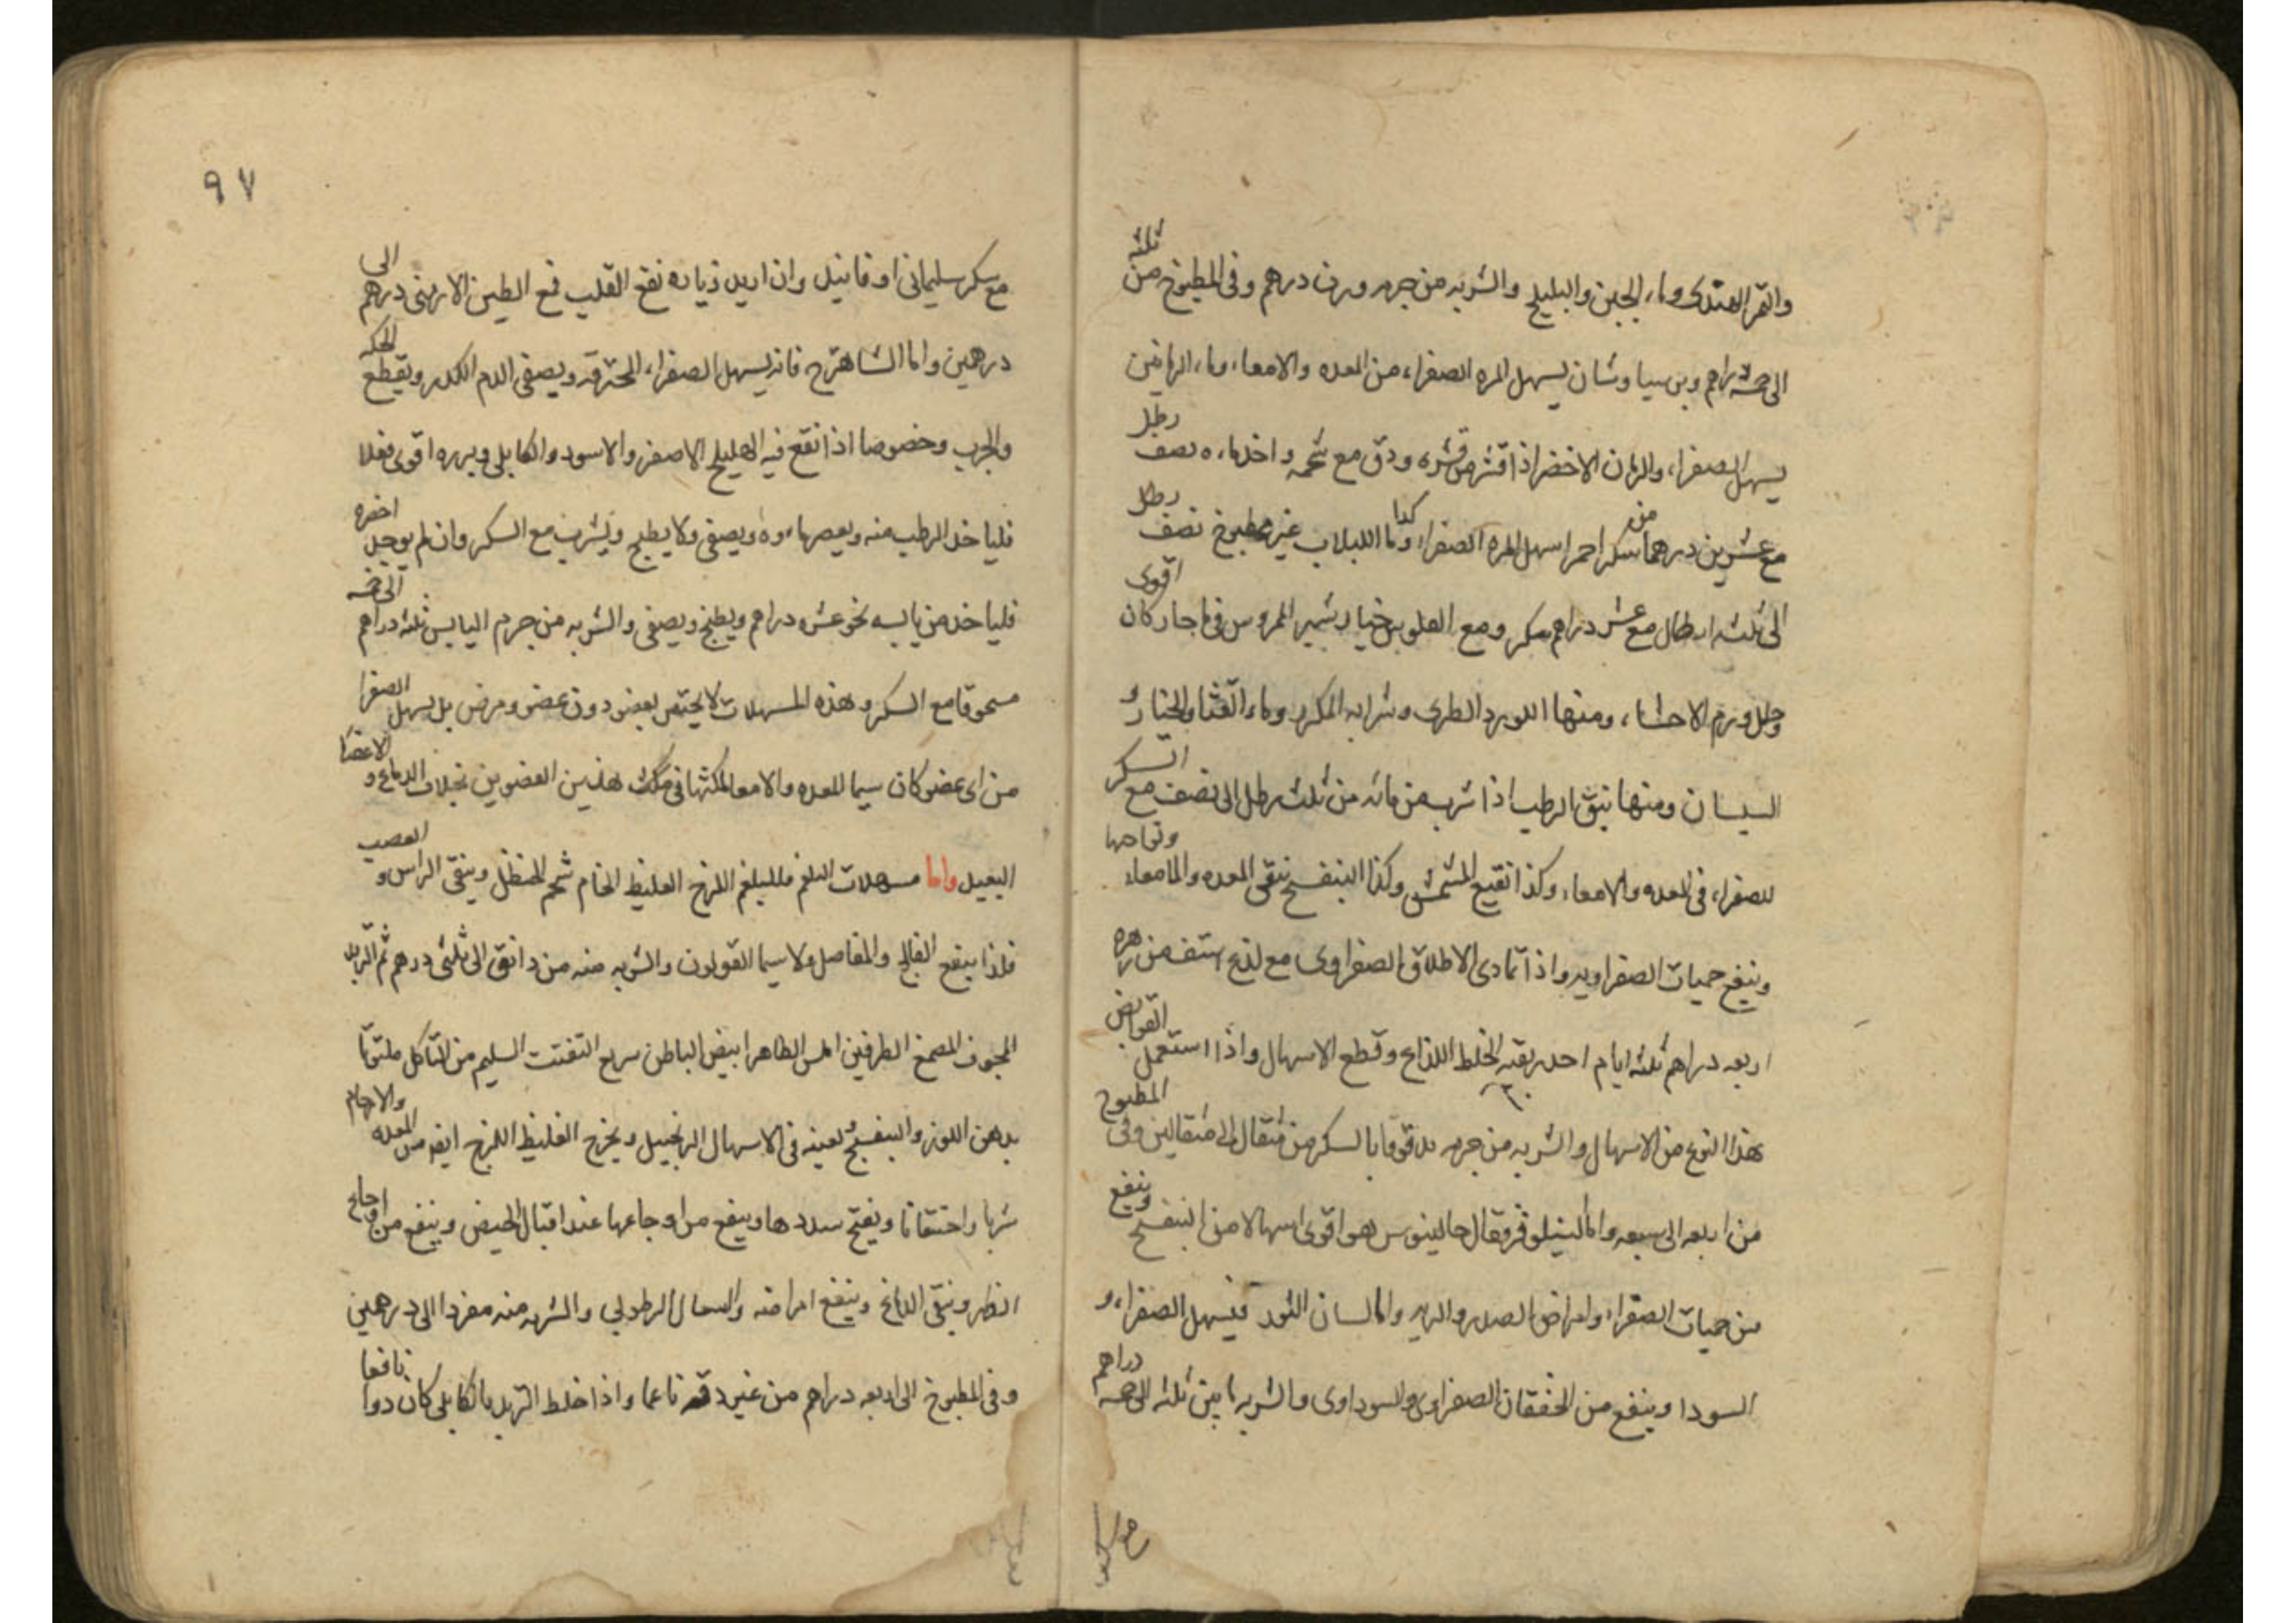 والتمر الهندى وماء الجبن والبليلج والشربه من جرمه وزن درهم وفى المطبوخ من ثلثه
الى خمسه دراهم وبرسياوشان يسهل المره الصفراء من المعده والامعاء وماء الرمانين
يسهل الصفراء والرمان الاخضر اذا قشر من قشره ودق مع شحمه واخذ ماءه نصف رطل
مع عشرين درهما من سكر احمر اسهل المره الصفراء كذا وماء اللبلاب غير مطبوخ نصف رطل
الى ثلثه ارطال مع عشر دراهم سكر ومع الفلوس خيارشمبر الممروس فى ماء حار كان اقوى
وحلل ورم الاحشاء ومنها الورد الطرى وشرابه المكرر وماء القثا والخيار و
السبستان ومنها نبق الرطب اذا شرب من مائه من ثلث رطل الى نصف مع السكر
للصفراء فى المعده والامعاء وكذا نقيع المشمش وكذا البنفسج ينقى المعده والامعاء ونواحيها
وينفع حميات الصفراويه واذا تمادى الاطلاق الصفراوى مع لذع استف من زهره
اربعه دراهم ثلثه ايام احدر بقيه الخلط اللذاع وقطع الاسهال واذا استعمل القوابض
هذا النوع من الاسهال والشربه من جرمه مدقوقا بالسكر من مثقال الى مثقالين وفى المطبوخ
من اربعه الى سبعه واما النيلوفر فقال جالينوس هو اقوى اسهالا من البنفسج وينفع
من حميات الصفراء وامراض الصدر والريه واما لسان الثور فيسهل الصفراء و
السودا وينفع من الخفقان الصفراوى والسوداوى والشربه ما بين ثلثه الى خمسه دراهم
٩٧
مع سكر سليمانى او فانيد وان اريد زياده نفع القلب فمع الطين الارمنى درهم الى
درهمين واما الشاهترج فانه يسهل الصفراء المحترقه ويصفى الدم الكدر ويقطع الحكه
والجرب وخصوصا اذا نقع فيه الهليلج الاصفر والاسود والكابلى وبزره اقوى فعلا
فلياخذ الرطب منه ويعصر ماءه ويصفى ولا يطبخ ويشرب مع السكر وان لم يوجد اخضره
فلياخذ من يابسه نحو عشره دراهم ويطبخ ويصفى والشربه من جرم اليابس ثلثه دراهم الى خمسه
مسحوقا مع السكر وهذه المسهلات لا يختص بعضو دون عضو ومرض بل يسهل الصفرا
من اى عضو كان سيما المعده والامعا لمكثها فى هذين العضوين بخلاف الدماغ و الاعضا
البعيد واما مسهلات البلغم فللبلغم اللزج الغليظ الخام شحم الحنظل وينقى الراس و العصب
فلذا ينفع الفالج والمفاصل ولا سيما القولون والشربه منه من دانق الى ثلثى درهم ثم التربد
المجوف المصمغ الطرفين املس الظاهر ابيض الباطن سريع التفتت السليم من التاكل ملتوتا
بدهن اللوز والبنفسج ويعينه فى الاسهال الزنجبيل ويخرج الغليظ اللزج ايضا من المعده والارحام
شربا واحتقانا ويفتح سددها وينفع من اوجاعها عند اقبال الحيض وينفع من اوجاع
الظهر وينقى الدماغ وينفع امراضه والسعال الرطوبى والشربه منه مفردا الى درهمين
وفى المطبوخ الى اربعه دراهم من غير دقه ناعما واذا خلط التربد بالكابلى كان دوا نافعا